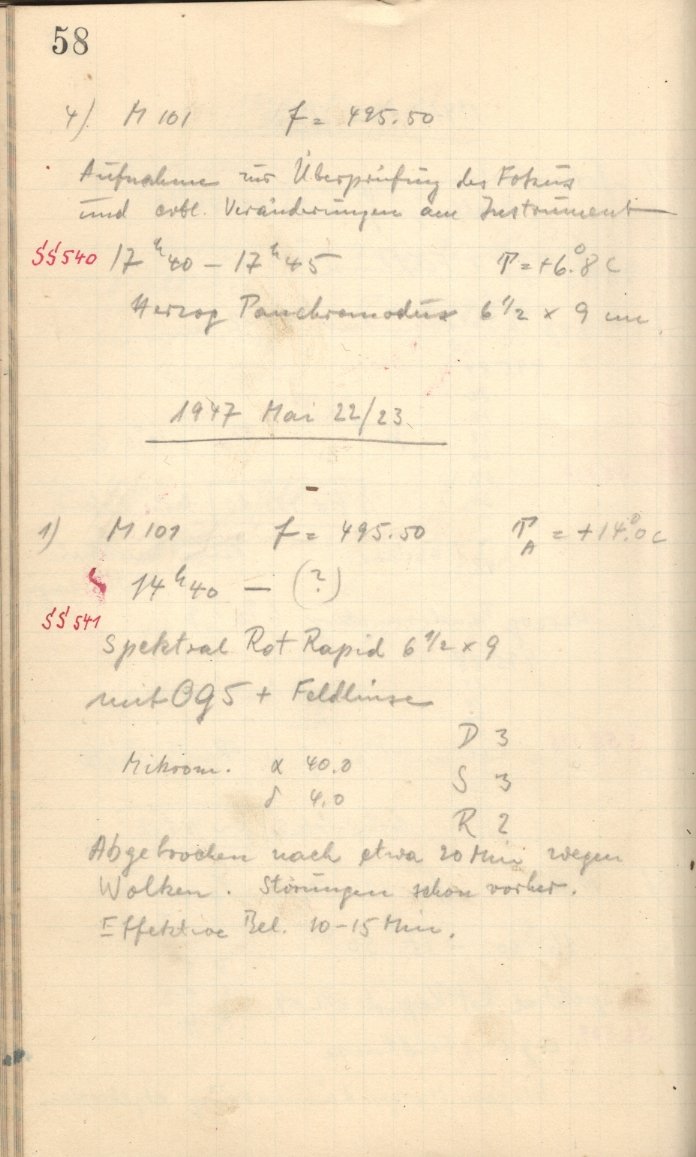 58
4) M 101 f = 495.50
Aufnahme zur Überprüfung des Fokus
und evtl. Veränderungen am Instrument
SS540 17ʰ40 – 17ʰ45 T = +6.°8 C
Herzog Panchromodux 6 1/2 x 9 cm
1947 Mai 22/23
1) M 101 f = 495.50 T_A = +14.°0 C
14ʰ40 – (?)
SS541
Spektral Rot Rapid 6 1/2 x 9
mit OG5 + Feldlinse
D 3
Mikrom. α 40.0
S 3
δ 4.0
R 2
Abgebrochen nach etwa 20 Min wegen
Wolken. Störungen schon vorher.
Effektive Bel. 10–15 Min.